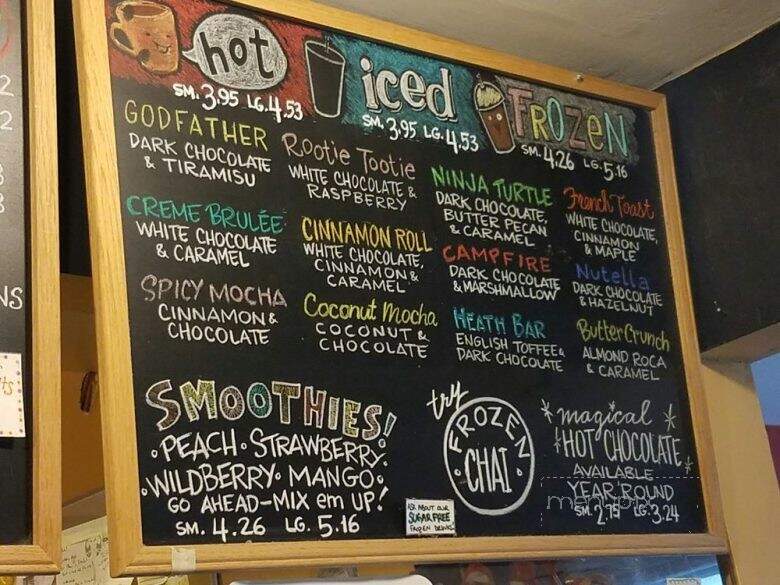 hot
SM. 3.95 LG. 4.53
iced
SM. 3.95 LG. 4.53
FROZEN
SM. 4.26 LG. 5.16
GODFATHER
DARK CHOCOLATE
& TIRAMISU
CREME BRULÉE
WHITE CHOCOLATE
& CARAMEL
SPICY MOCHA
CINNAMON &
CHOCOLATE
Rootie Tootie
WHITE CHOCOLATE &
RASPBERRY
CINNAMON ROLL
WHITE CHOCOLATE,
CINNAMON &
CARAMEL
Coconut Mocha
COCONUT &
CHOCOLATE
NINJA TURTLE
DARK CHOCOLATE,
BUTTER PECAN
& CARAMEL
CAMPFIRE
DARK CHOCOLATE
& MARSHMALLOW
HEATH BAR
ENGLISH TOFFEE &
DARK CHOCOLATE
French Toast
WHITE CHOCOLATE,
CINNAMON
& MAPLE
Nutella
DARK CHOCOLATE
& HAZELNUT
ButterCrunch
ALMOND ROCA
& CARAMEL
SMOOTHIES!
• PEACH • STRAWBERRY •
• WILDBERRY • MANGO •
GO AHEAD - MIX em UP!
SM. 4.26 LG. 5.16
try
FROZEN
• CHAI •
ASK ABOUT OUR
SUGAR FREE
FROZEN DRINKS
magical
HOT CHOCOLATE
AVAILABLE
YEAR 'ROUND
SM. 2.75 LG. 3.24
NS